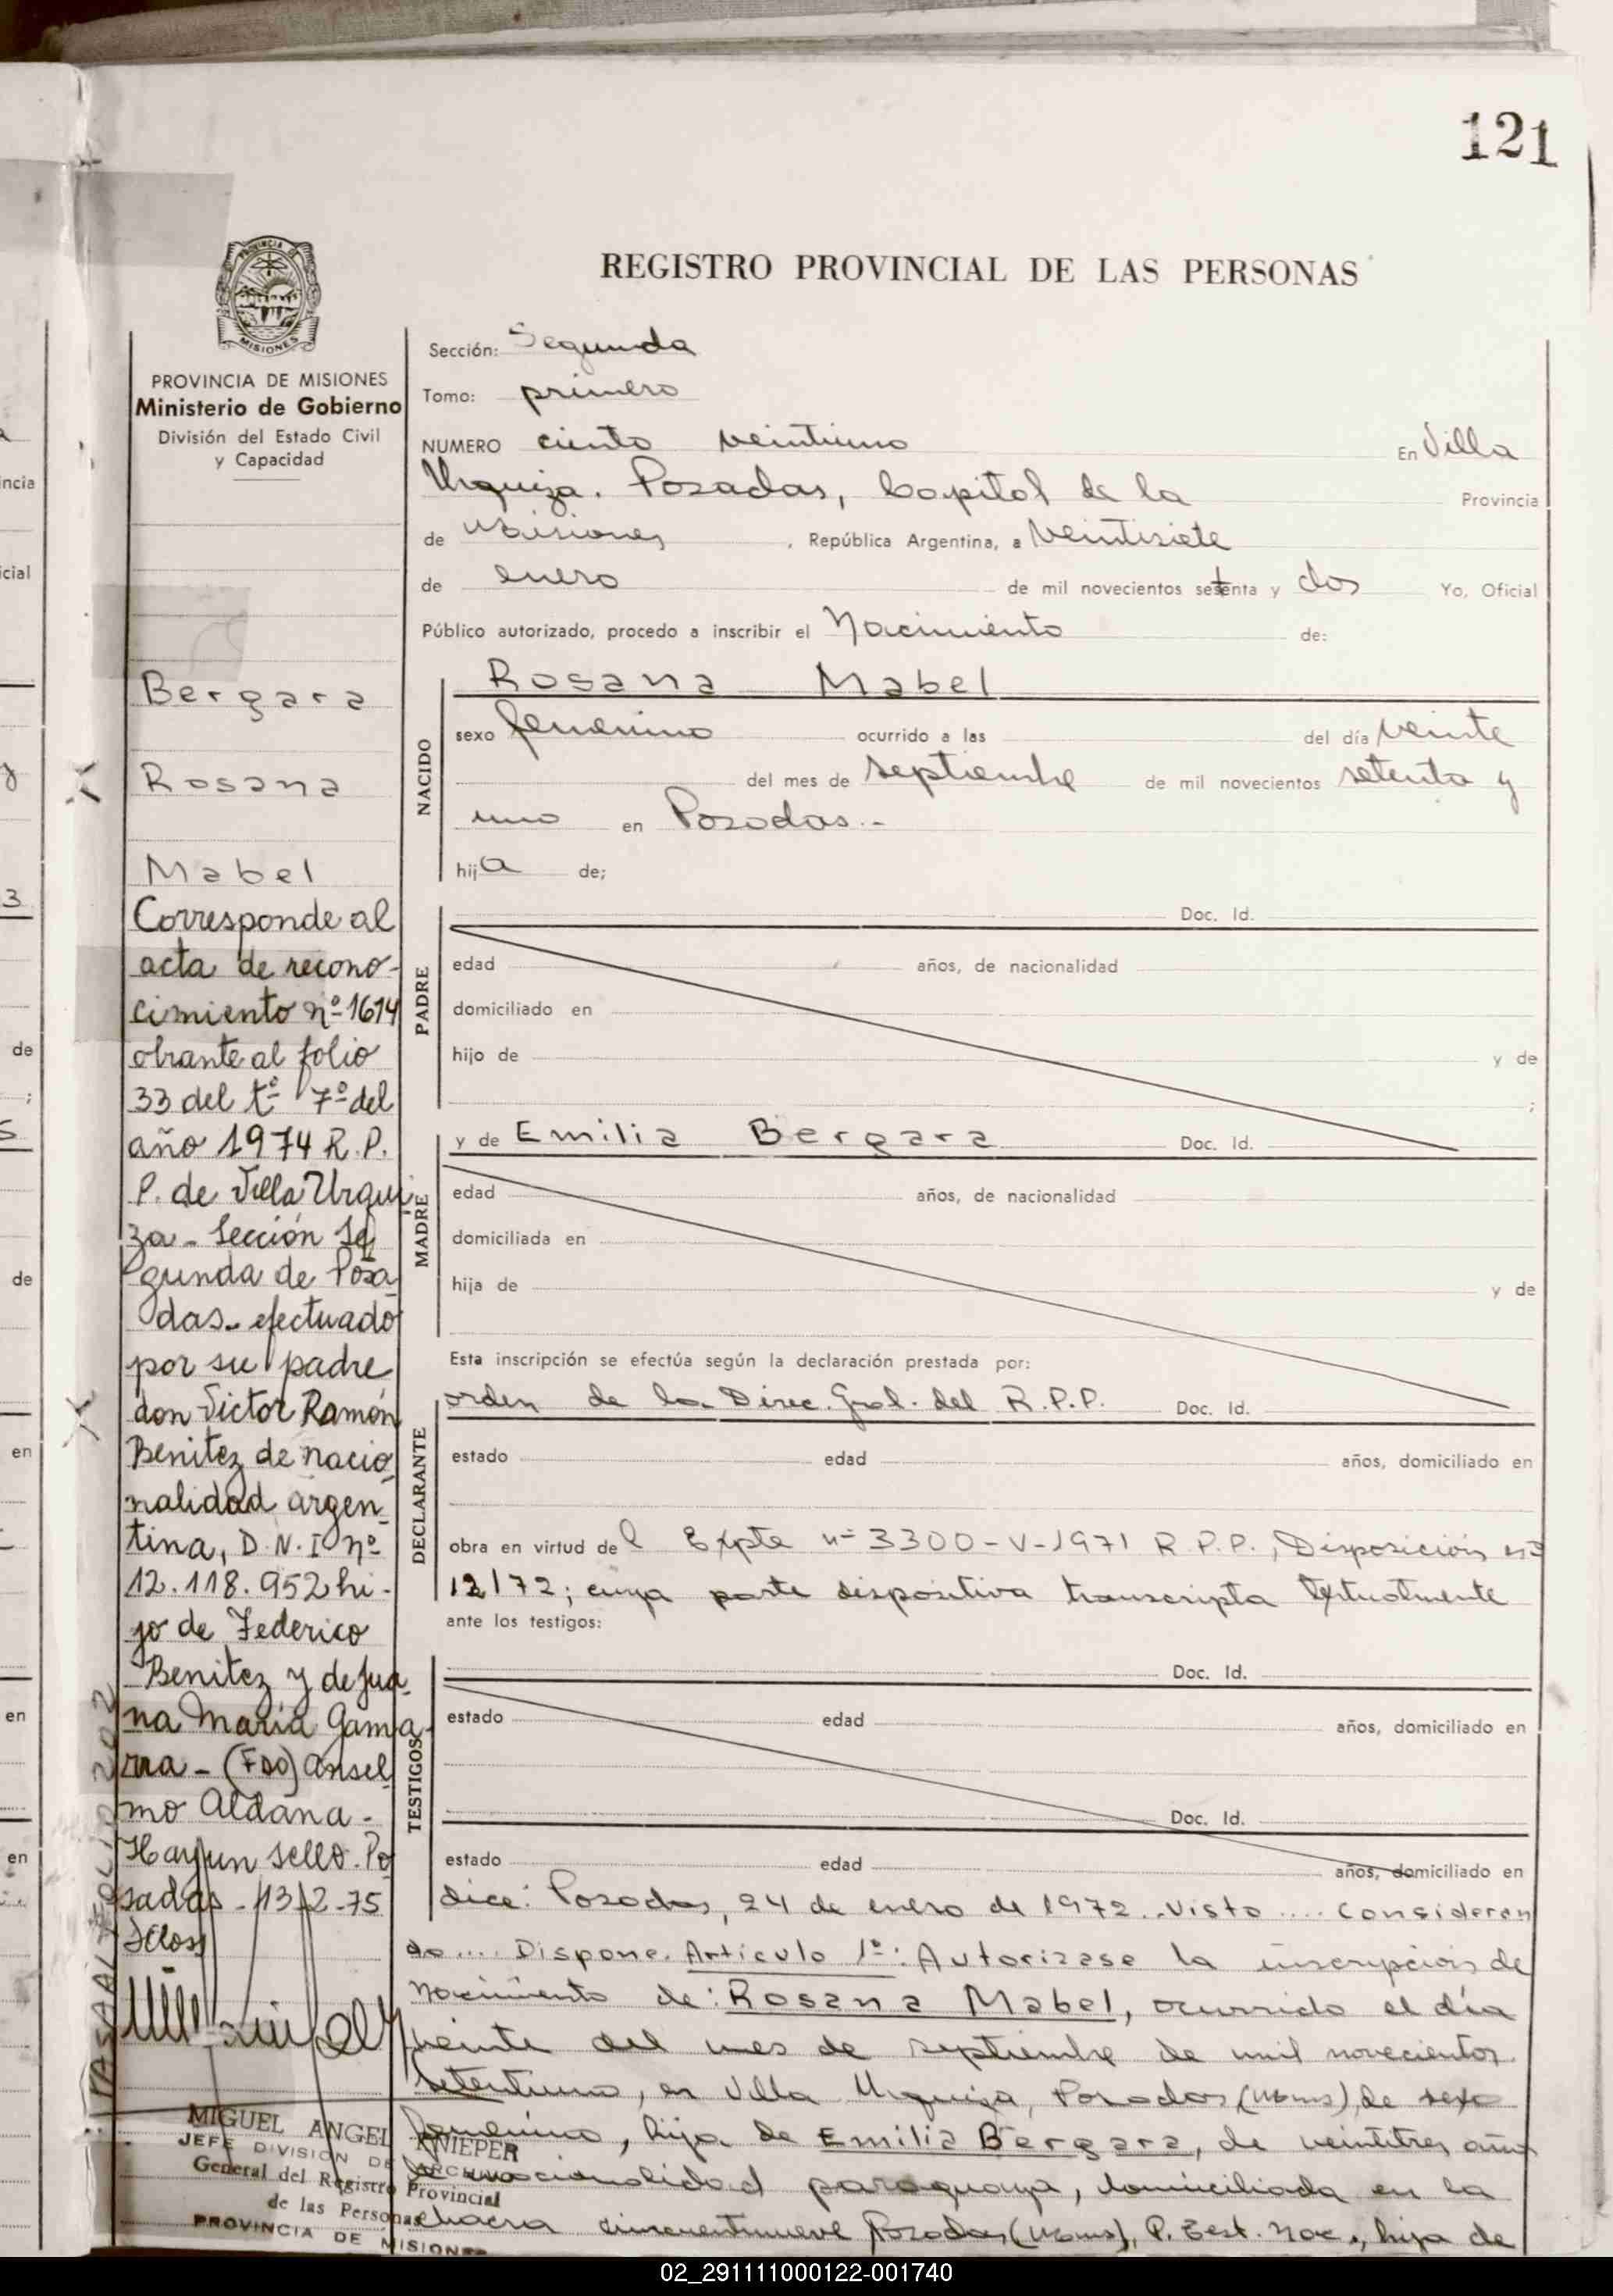 121
REGISTRO PROVINCIAL DE LAS PERSONAS
PROVINCIA DE
MISIONES
PROVINCIA DE MISIONES
Ministerio de Gobierno
División del Estado Civil
y Capacidad
Bergara
Rosana
Mabel
Corresponde al
acta de recono-
cimiento nº 1614
obrante al folio
33 del tº 7º del
año 1974 R.P.
P. de Villa Urqui
za - Sección Se
gunda de Posa
das - efectuado
por su padre
don Victor Ramón
Benitez de nacio
nalidad argen
tina, D.N.I nº
12.118.952 hi-
jo de Federico
Benitez y de Jua-
na Maria Gama-
rra - (Fdo) Ansel
mo Aldana -
Hay un sello. Po
sadas - 13-2-75
MIGUEL ANGEL KNIEPER
JEFE DIVISION DE ARCHIVO
General del Registro Provincial
de las Personas
PROVINCIA DE MISIONES
PASA AL FOLIO 202
Sección: Segunda
Tomo: primero
NUMERO ciento veintiuno En Villa
Urquiza. Posadas, Capital de la Provincia
de Misiones, República Argentina, a Veintisiete
de enero de mil novecientos setenta y dos Yo, Oficial
Público autorizado, procedo a inscribir el Nacimiento de:
NACIDO
Rosana Mabel
sexo femenino ocurrido a las del día veinte
del mes de septiembre de mil novecientos setenta y
uno en Posadas.-
hija de;
PADRE
Doc. Id.
edad años, de nacionalidad
domiciliado en
hijo de y de
;
MADRE
y de Emilia Bergara Doc. Id.
edad años, de nacionalidad
domiciliada en
hija de y de
Esta inscripción se efectúa según la declaración prestada por:
DECLARANTE
orden de la Direc. Gral. del R.P.P. Doc. Id.
estado edad años, domiciliado en
obra en virtud del Expte nº 3300-V-1971 R.P.P., Disposición nº
12/72; cuya parte dispositiva transcripta textualmente
ante los testigos:
TESTIGOS
Doc. Id.
estado edad años, domiciliado en
Doc. Id.
estado edad años, domiciliado en
dice: Posadas, 24 de enero de 1972. Visto .... Consideran
do .... Dispone. Artículo 1º: Autorizase la inscripción de
nacimiento de: Rosana Mabel, ocurrido el día
veinte del mes de septiembre de mil novecientos
setentiuno, en Villa Urquiza, Posadas (Mnes), de sexo
femenino, hija de Emilia Bergara, de veintitres años
de nacionalidad paraguaya, domiciliada en la
chacra cincuentinueve Posadas (Mnes), P. Est. Nac., hija de
02_291111000122-001740